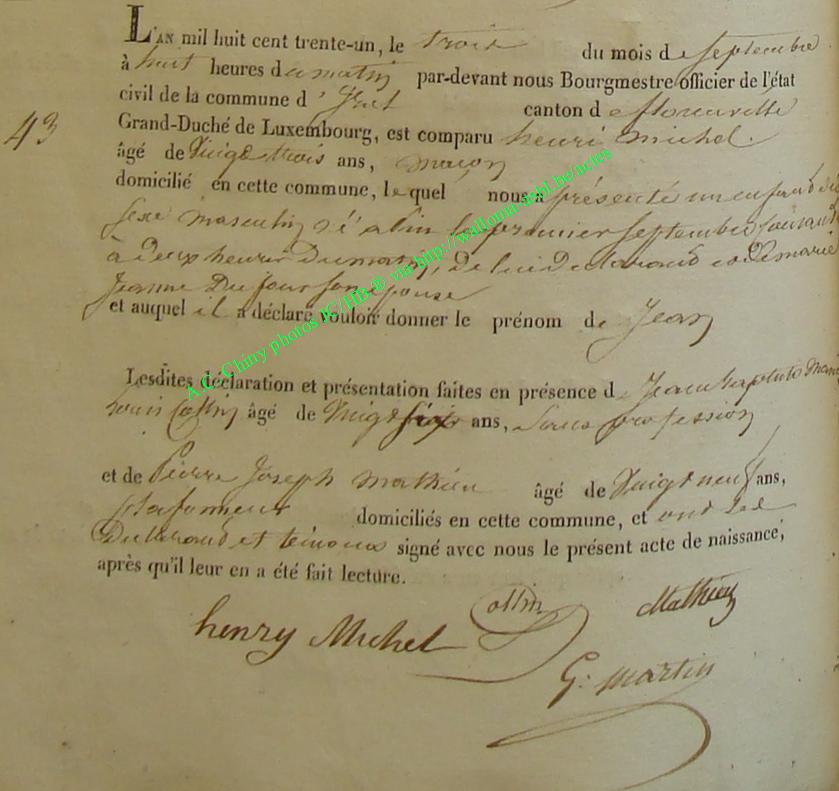 L'AN mil huit cent trente-un, le trois du mois de septembre
à huit heures du matin par-devant nous Bourgmestre officier de l'état
civil de la commune d' canton de florenville
43
Grand-Duché de Luxembourg, est comparu henri michel.
âgé de Vingt trois ans, maçon
domicilié en cette commune, lequel nous a présenté un enfant du
sexe masculin né le premier septembre courant
à deux heures du matin, de lui declarant et de marie
Jeanne Dufour son epouse
et auquel il a déclaré vouloir donner le prénom de Jean
Lesdites déclaration et présentation faites en présence de Jean baptiste
louis Collin âgé de Vingt six ans, sans profession
et de Pierre Joseph mathieu âgé de Vingt neuf ans,
plafoneur domiciliés en cette commune, et ont les
Declarant et temoins signé avec nous le présent acte de naissance,
après qu'il leur en a été fait lecture.
Collin Mathieu
henry Michel
G. martin
A.C. Chiny photos IC/HB © via http://wallonia-asbl.be/actes